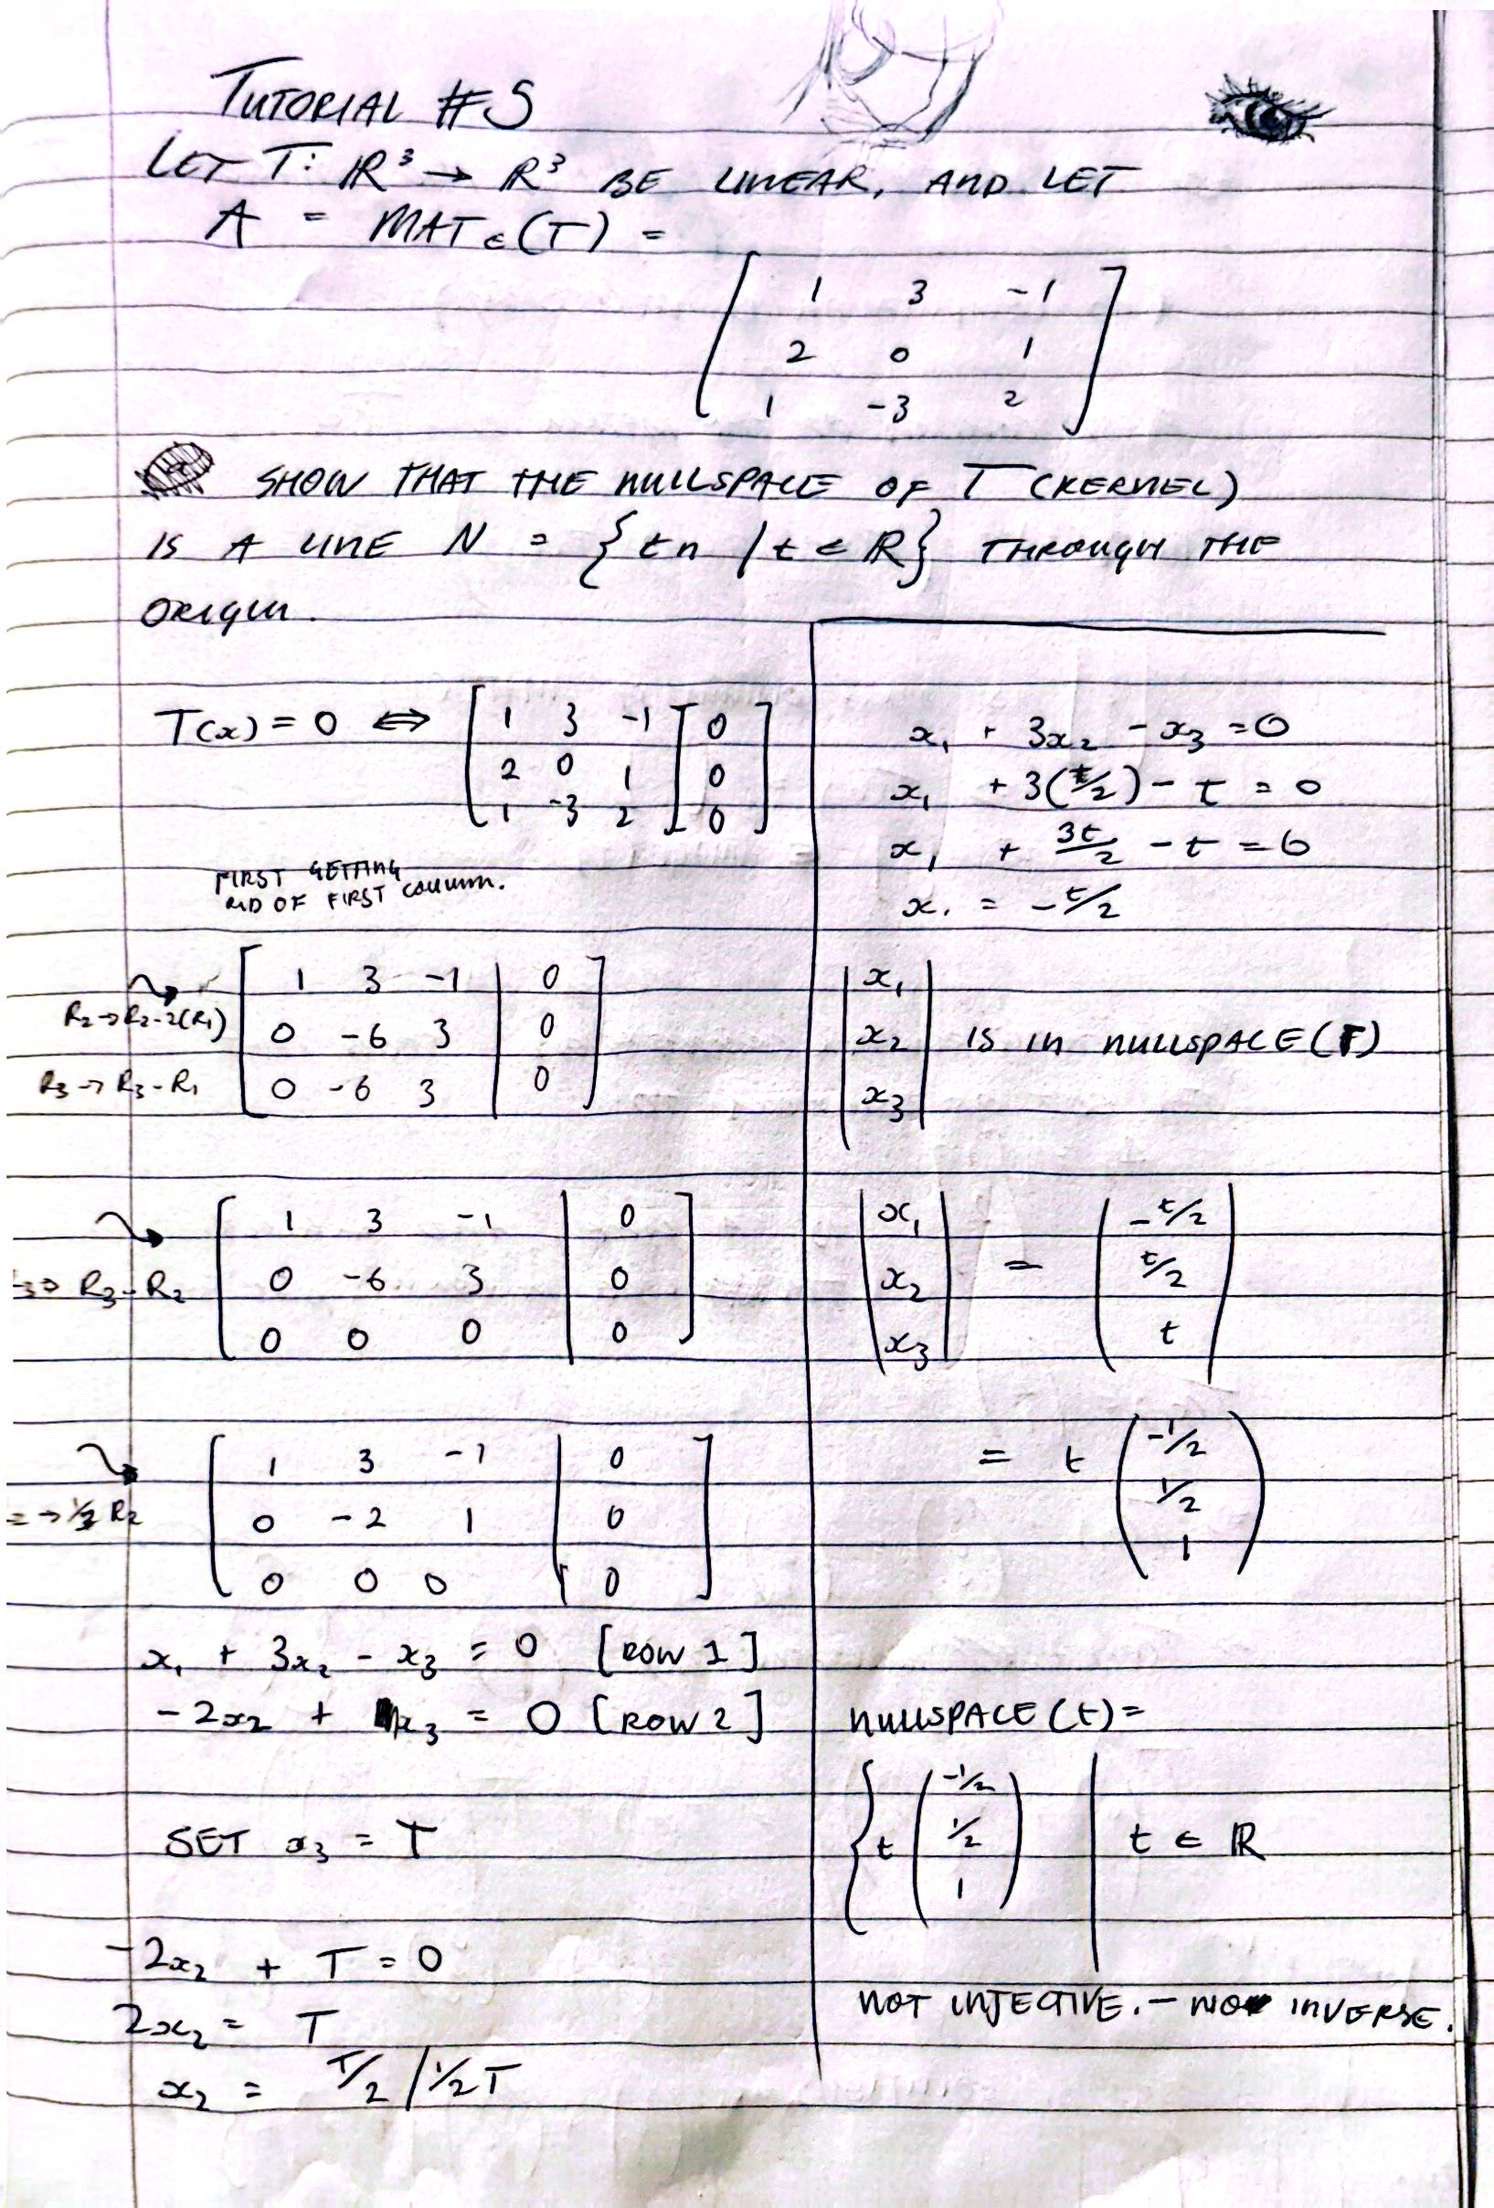 TUTORIAL #5
LET T: ℝ³ → ℝ³ BE LINEAR, AND LET
A = MAT ϵ (T) =
[ 1 3 -1 ]
[ 2 0 1 ]
[ 1 -3 2 ]
SHOW THAT THE NULLSPACE OF T (KERNEL)
IS A LINE N = { tn | t ∈ ℝ } THROUGH THE
ORIGIN.
T(x) = 0 ⇔ [ 1 3 -1 | 0 ]
[ 2 0 1 | 0 ]
[ 1 -3 2 | 0 ]
FIRST GETTING
RID OF FIRST COLUMN.
[ 1 3 -1 | 0 ]
R₂ → R₂ - 2(R₁) [ 0 -6 3 | 0 ]
R₃ → R₃ - R₁ [ 0 -6 3 | 0 ]
[ 1 3 -1 | 0 ]
→ R₃ - R₂ [ 0 -6 3 | 0 ]
[ 0 0 0 | 0 ]
[ 1 3 -1 | 0 ]
→ 1/3 R₂ [ 0 -2 1 | 0 ]
[ 0 0 0 | 0 ]
x₁ + 3x₂ - x₃ = 0 [ROW 1]
-2x₂ + x₃ = 0 [ROW 2]
SET x₃ = T
-2x₂ + T = 0
2x₂ = T
x₂ = T/2 / 1/2 T
x₁ + 3x₂ - x₃ = 0
x₁ + 3(t/2) - t = 0
x₁ + 3t/2 - t = 0
x₁ = -t/2
| x₁ |
| x₂ | IS IN NULLSPACE(T)
| x₃ |
| x₁ | ( -t/2 )
| x₂ | = ( t/2 )
| x₃ | ( t )
( -1/2 )
= t ( 1/2 )
( 1 )
NULLSPACE (t) =
( -1/2 )
{ t ( 1/2 ) | t ∈ ℝ
( 1 )
NOT INJECTIVE. - NO INVERSE.